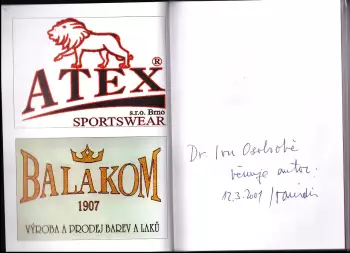 ATEX®
s.r.o. Brno
SPORTSWEAR
BALAKOM
1907
VÝROBA A PRODEJ BAREV A LAKŮ
Dr. Ivu Osolsobě
věnuje autor.
12.3.2001